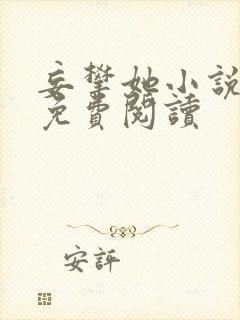 妄攀她小說
免費閱讀
安評